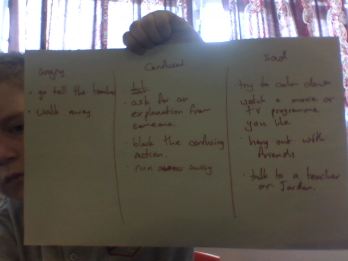 angry
· go tell the teacher
· walk away
Confused
· ask for an
explanation from
someone.
· block the confusing
action.
· run away
Sad
· try to calm down
watch a movie or
TV programme
you like
· hang out with
friends
· talk to a teacher
or Jordan.